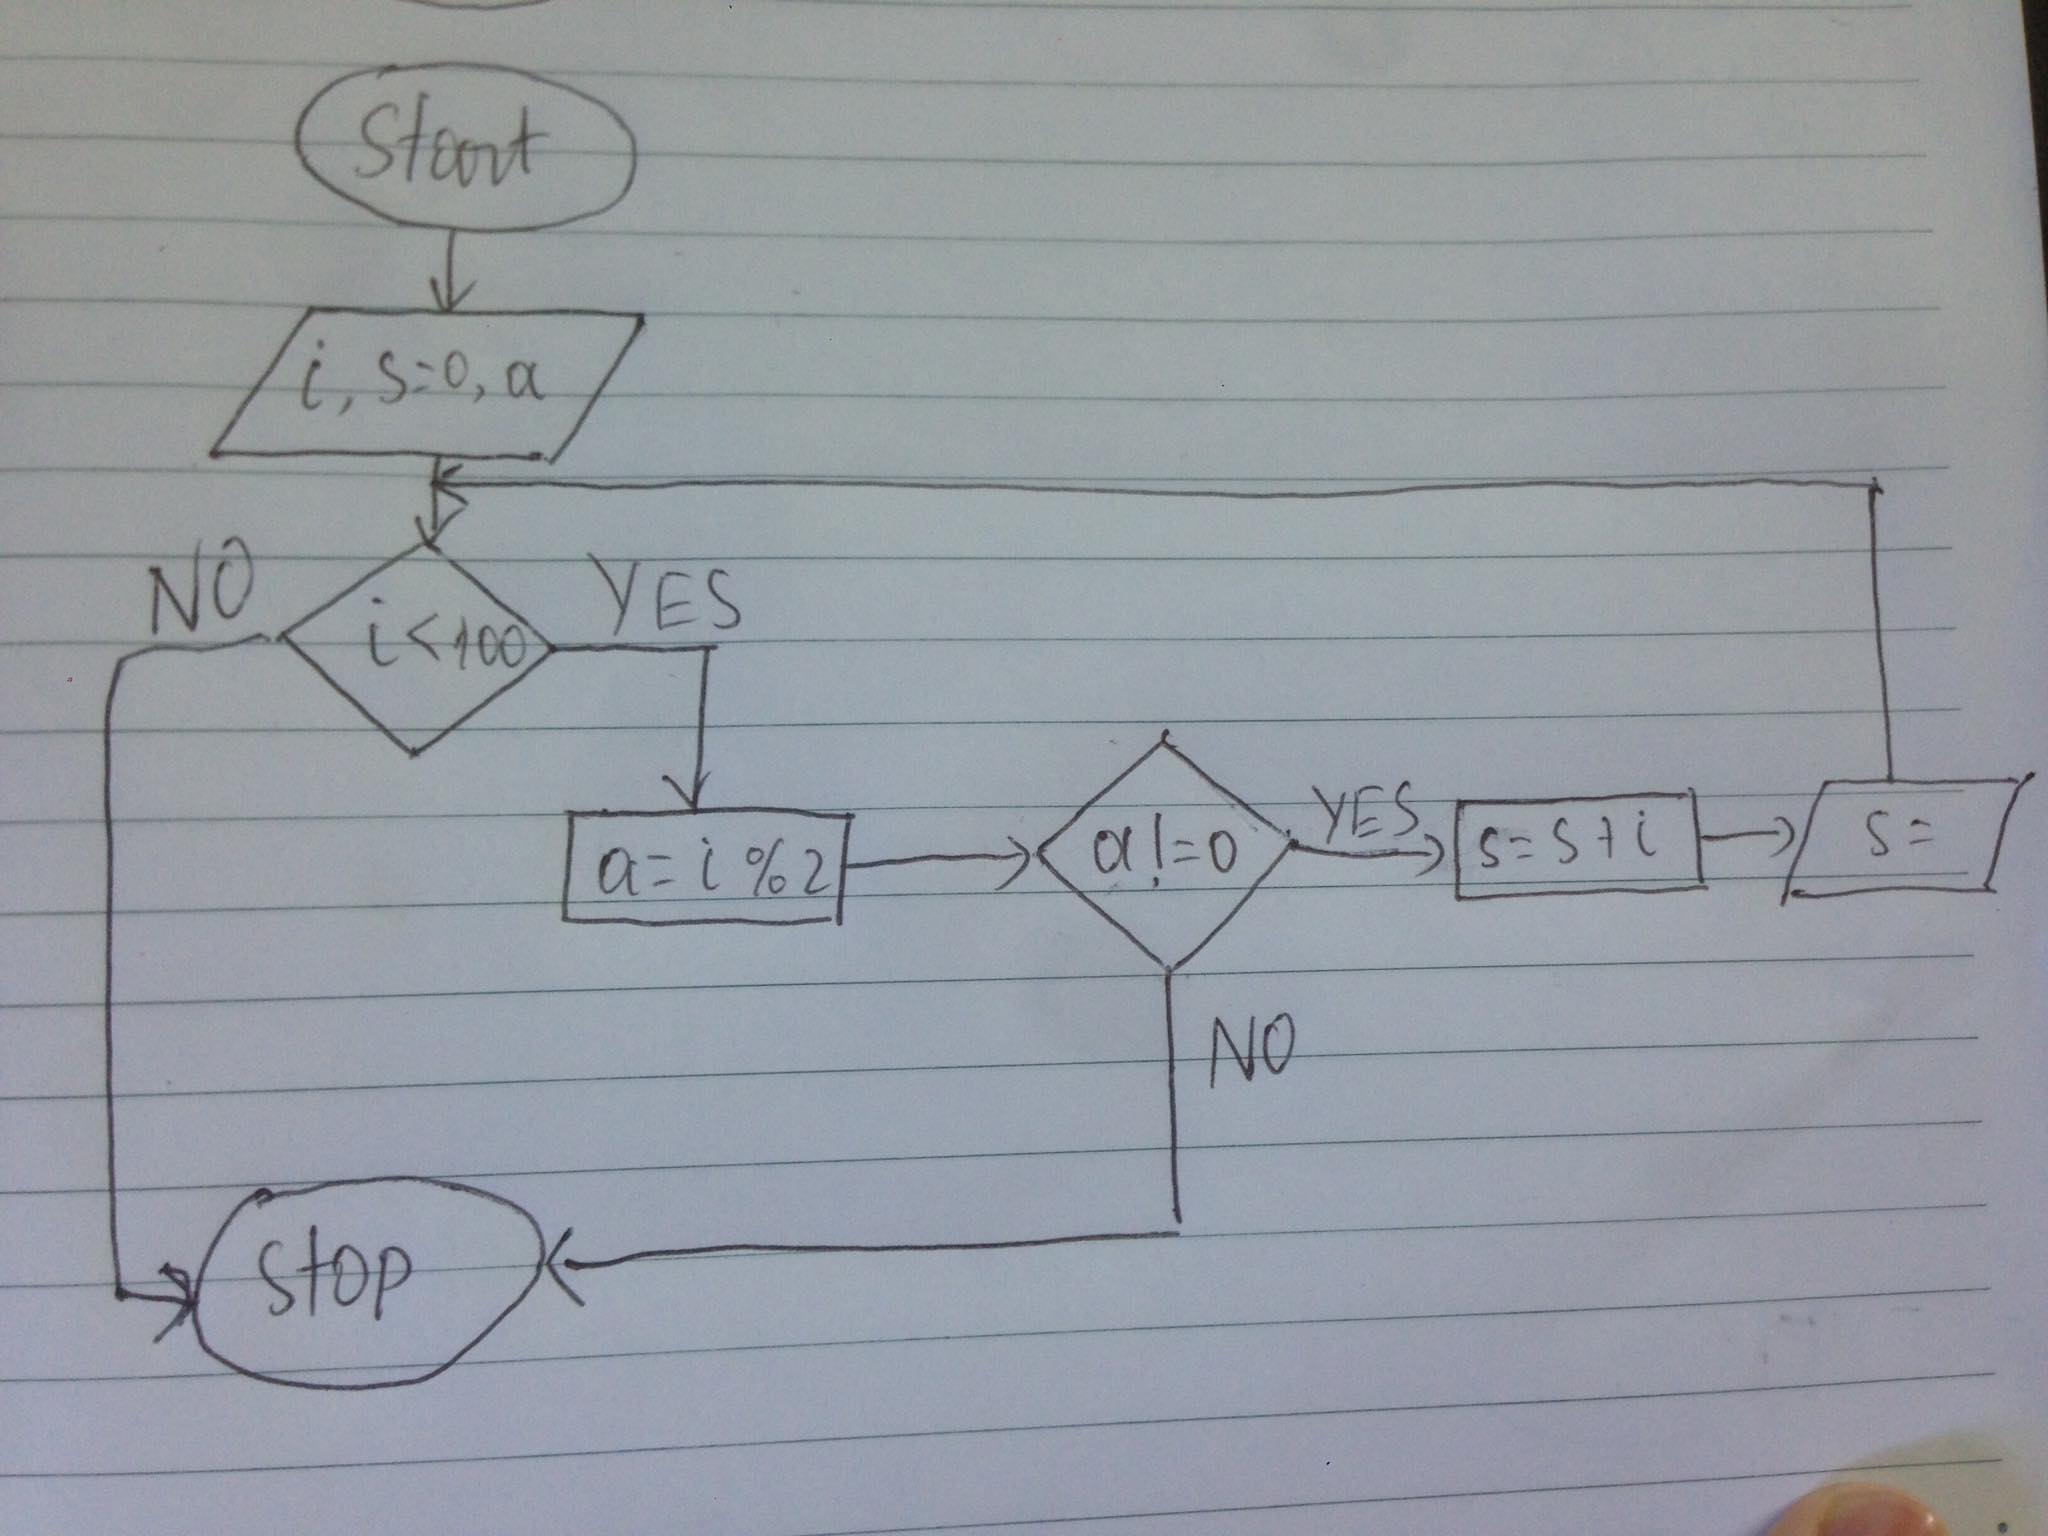 Start
i, s=0, a
NO
i<100
YES
a=i%2
a!=0
YES
s=s+i
s=
NO
stop